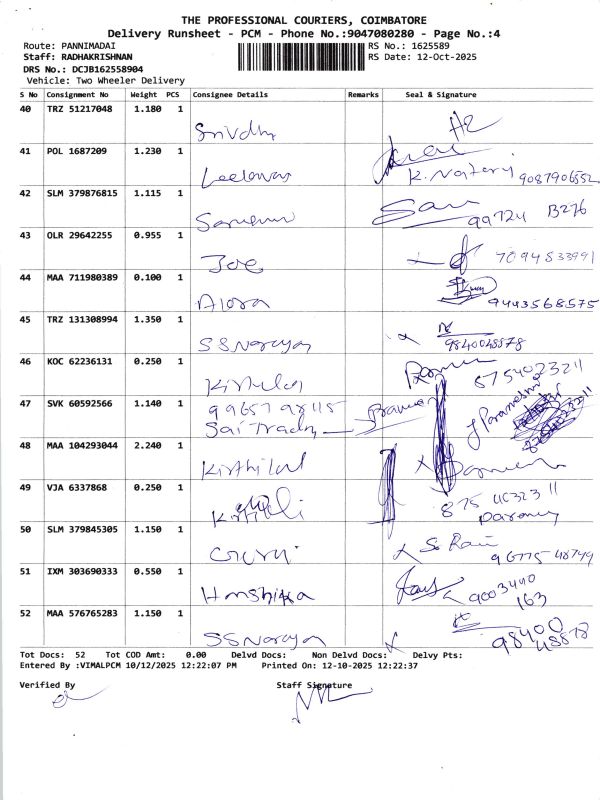 THE PROFESSIONAL COURIERS, COIMBATORE
Delivery Runsheet - PCM - Phone No.:9047080280 - Page No.:4
Route: PANNIMADAI RS No.: 1625589
Staff: RADHAKRISHNAN RS Date: 12-Oct-2025
DRS No.: DCJB162558904
Vehicle: Two Wheeler Delivery
S No Consignment No Weight PCS Consignee Details Remarks Seal & Signature
40 TRZ 51217048 1.180 1
41 POL 1687209 1.230 1
K. Natary 9087906552
42 SLM 379876815 1.115 1
99724 B276
43 OLR 29642255 0.955 1
Joe 7094533991
44 MAA 711980389 0.100 1
Alora 9443568575
45 TRZ 131308994 1.350 1
SSNarayan 9840048878
46 KOC 62236131 0.250 1
8754023211
47 SVK 60592566 1.140 1
Sai Trady
48 MAA 104293044 2.240 1
Kirthilal
49 VJA 6337868 0.250 1
50 SLM 379845305 1.150 1
51 IXM 303690333 0.550 1
Hanshika 9003440
163
52 MAA 576765283 1.150 1
SSNarayan 98400
48878
Tot Docs: 52 Tot COD Amt: 0.00 Delvd Docs: Non Delvd Docs: Delvy Pts:
Entered By :VIMALPCM 10/12/2025 12:22:07 PM Printed On: 12-10-2025 12:22:37
Verified By Staff Signature